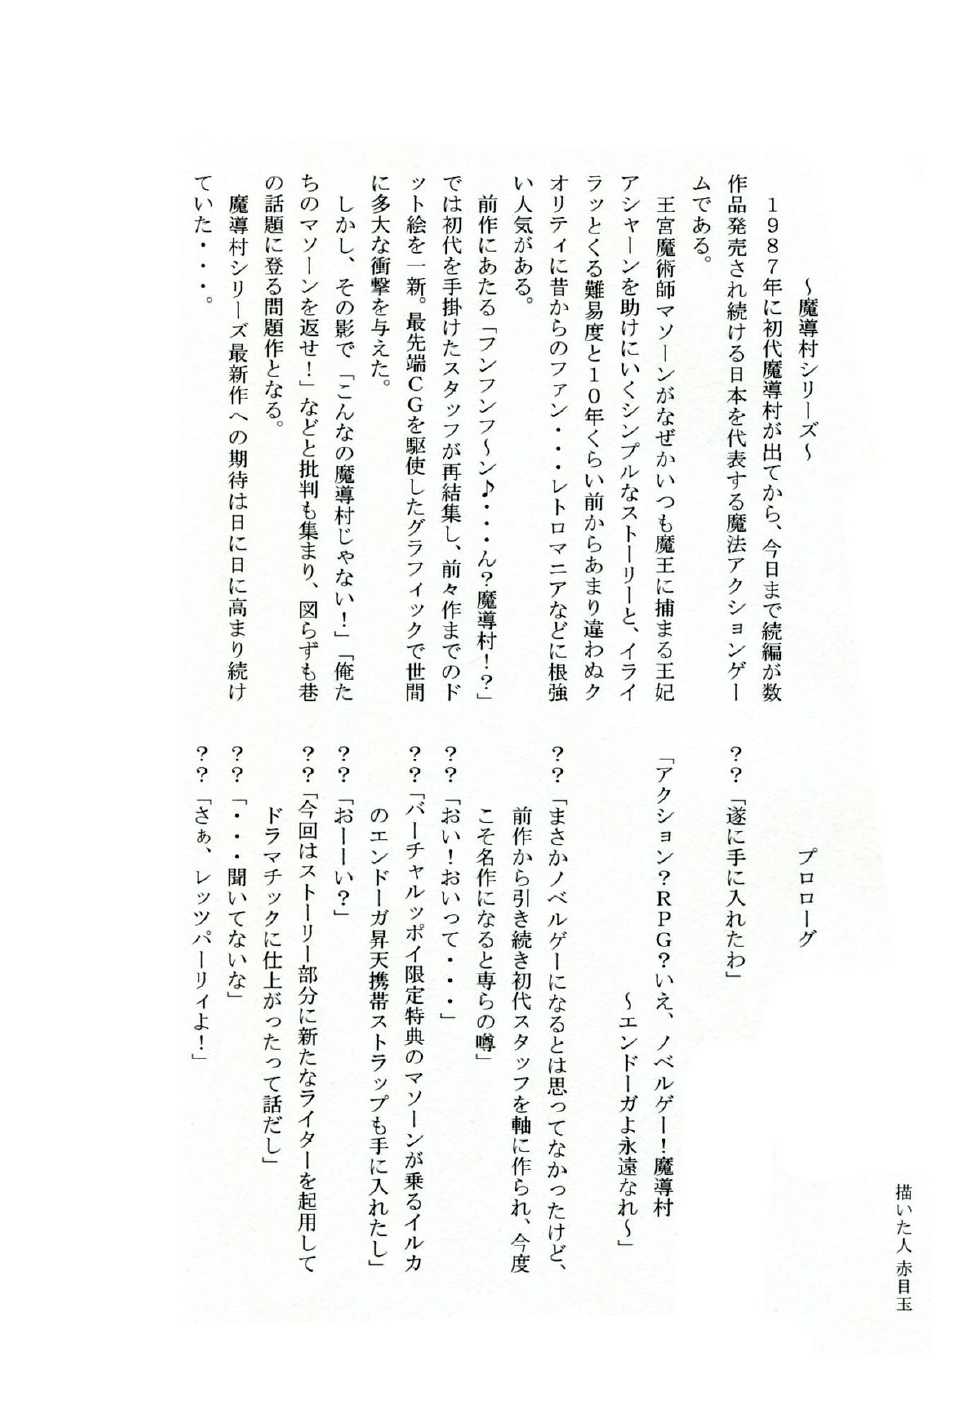 描いた人 赤目玉
～魔導村シリーズ～
１９８７年に初代魔導村が出てから、今日まで続編が数
作品発売され続ける日本を代表する魔法アクションゲー
ムである。
王宮魔術師マソーンがなぜかいつも魔王に捕まる王妃
アシャーンを助けにいくシンプルなストーリーと、イライ
ラッとくる難易度と１０年くらい前からあまり違わぬク
オリティに昔からのファン・・・レトロマニアなどに根強
い人気がある。
前作にあたる「フンフンフ～ン♪・・・ん？魔導村！？」
では初代を手掛けたスタッフが再結集し、前々作までのド
ット絵を一新。最先端ＣＧを駆使したグラフィックで世間
に多大な衝撃を与えた。
しかし、その影で「こんなの魔導村じゃない！」「俺た
ちのマソーンを返せ！」などと批判も集まり、図らずも巷
の話題に登る問題作となる。
魔導村シリーズ最新作への期待は日に日に高まり続け
ていた・・・。
プロローグ
？？「遂に手に入れたわ」
「アクション？ＲＰＧ？いえ、ノベルゲー！魔導村
～エンドーガよ永遠なれ～」
？？「まさかノベルゲーになるとは思ってなかったけど、
前作から引き続き初代スタッフを軸に作られ、今度
こそ名作になると専らの噂」
？？「おい！おいって・・・」
？？「バーチャルッポイ限定特典のマソーンが乗るイルカ
のエンドーガ昇天携帯ストラップも手に入れたし」
？？「おーーい？」
？？「今回はストーリー部分に新たなライターを起用して
ドラマチックに仕上がったって話だし」
？？「・・・聞いてないな」
？？「さぁ、レッツパーリィよ！」